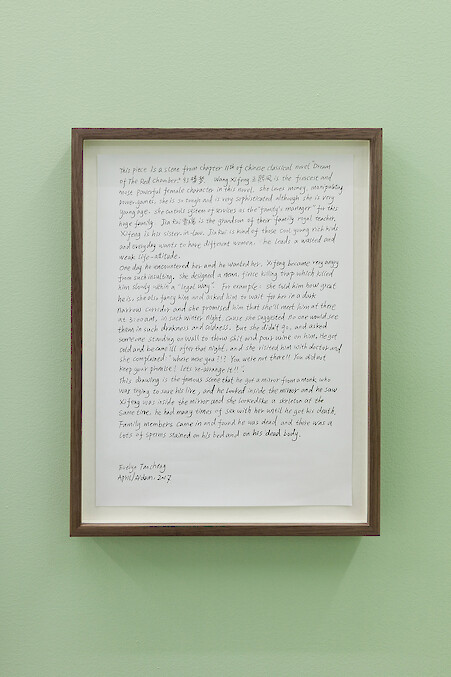 This piece is a scene from chapter 11th of Chinese classical novel "Dream
of The Red Chamber" 红楼梦. Wang Xifeng 王熙凤 is the fiercest and
most powerful female character in this novel. she loves money, manipulating
she is so tough and is very sophisticated although she is very
young age. she controls system of services as the "family's manager" for this
huge family. Jia Rui 贾瑞 is the grandson of their family royal teacher,
Xifeng is his sister-in-law. Jia Rui is kind of those cool young rich kids
and everyday wants to have different women. he leads a wasted and
weak life-attitude.
One day he encountered her and he wanted her. Xifeng became very angry
from such insulting. she designed a mean, fierce killing trap which killed
him slowly within a "legal way". For example: she told him how great
he is, she also fancy him and asked him to wait for her in a dark
narrow corridor and she promised him that she'll meet him at there
at 3:00am, in such winter night. Cause she suggested no one would see
them in such darkness and coldness. But she didn't go, and asked
someone standing on wall to throw shit and pour urine on him. He got
cold and became ill after that night, and she visited him with doctor and
she complained "where were you ?!? You were not there!! You did not
keep your promise! lets re-arrange it!!".
This drawing is the famous scene that he got a mirror from a monk who
was trying to save his live, and he looked inside the mirror and he saw
Xifeng was inside the mirror and she looked like a skeleton at the
same time. he had many times of sex with her until he got his death.
Family members came in and found he was dead and there was a
lots of sperms stained on his bed and on his dead body.
April 2017